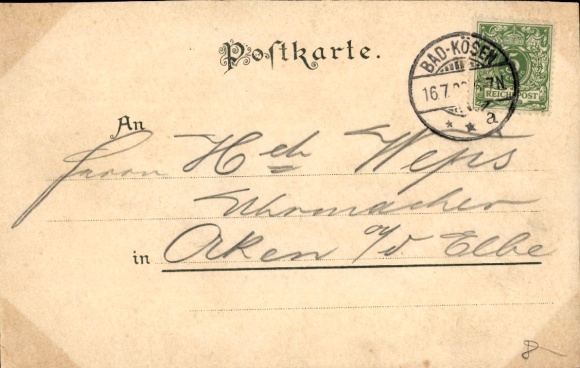 Postkarte.
BAD-KÖSEN
16.7. 7N
a
REICHSPOST
An
Herrn Hch Weps
Uhrmacher
in Aken a/d Elbe